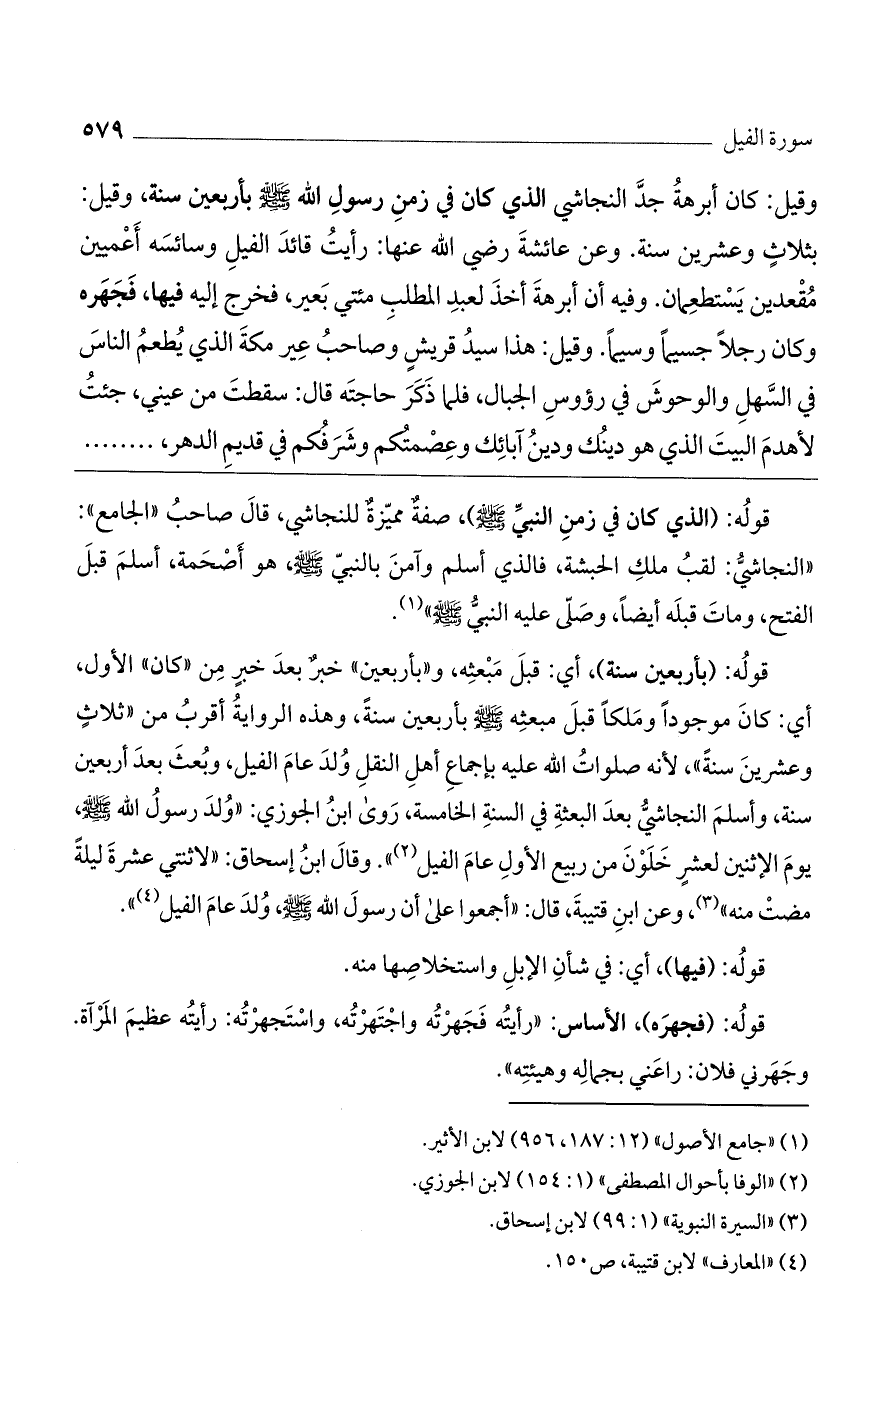 سورة الفيل ٥٧٩
وقيل: كان أبرهةُ جدَّ النجاشي الذي كان في زمنِ رسولِ الله ﷺ بأربعين سنة، وقيل:
بثلاثٍ وعشرين سنة. وعن عائشةَ رضي الله عنها: رأيتُ قائدَ الفيلِ وسائسَه أَعْميين
مُقْعدين يَسْتطعِمان. وفيه أن أبرهةَ أخذَ لعبدِ المطلبِ مئتي بَعير، فخرج إليه فيها، فَجَهَره
وكان رجلاً جسيماً وسيماً. وقيل: هذا سيدُ قريشٍ وصاحبُ عِير مكةَ الذي يُطعمُ الناسَ
في السَّهلِ والوحوشَ في رؤوسِ الجبال، فلما ذَكَرَ حاجتَه قال: سقطتَ من عيني، جئتُ
لأهدمَ البيتَ الذي هو دينُك ودينُ آبائِك وعِصْمتُكم وشَرَفُكم في قديمِ الدهر، ........
قولُه: (الذي كان في زمنِ النبيِّ ﷺ)، صفةٌ مميّزةٌ للنجاشي، قالَ صاحبُ «الجامع»:
«النجاشيُّ: لقبُ ملكِ الحبشة، فالذي أسلم وآمنَ بالنبيّ ﷺ، هو أَصْحَمة، أسلمَ قبلَ
الفتح، وماتَ قبلَه أيضاً، وصَلّى عليه النبيُّ ﷺ»(١).
قولُه: (بأربعين سنة)، أي: قبلَ مَبْعثِه، و«بأربعين» خبرٌ بعدَ خبرٍ مِن «كان» الأول،
أي: كانَ موجوداً ومَلكاً قبلَ مبعثِه ﷺ بأربعين سنةً، وهذه الروايةُ أقربُ من «ثلاثٍ
وعشرينَ سنةً»، لأنه صلواتُ الله عليه بإجماعِ أهلِ النقلِ وُلدَ عامَ الفيل، وبُعثَ بعدَ أربعين
سنة، وأسلمَ النجاشيُّ بعدَ البعثةِ في السنةِ الخامسة، رَوىٰ ابنُ الجوزي: «وُلدَ رسولُ الله ﷺ،
يومَ الإثنين لعشرٍ خَلَوْنَ من ربيع الأولِ عامَ الفيل(٢)». وقالَ ابنُ إسحاق: «لاثنتي عشرةَ ليلةً
مضتْ منه»(٣)، وعن ابنِ قتيبةَ، قال: «أجمعوا علىٰ أن رسولَ الله ﷺ، وُلدَ عامَ الفيل(٤)».
قولُه: (فيها)، أي: في شأنِ الإبلِ واستخلاصِها منه.
قولُه: (فجهرَه)، الأساس: «رأيتُه فَجَهرْتُه واجْتَهرْتُه، واسْتَجهرْتُه: رأيتُه عظيمَ المَرْآة.
وجَهَرني فلان: راعَني بجمالِه وهيئتِه».
(١) «جامع الأصول» (١٢: ١٨٧، ٩٥٦) لابن الأثير.
(٢) «الوفا بأحوال المصطفى» (١: ١٥٤) لابن الجوزي.
(٣) «السيرة النبوية» (١: ٩٩) لابن إسحاق.
(٤) «المعارف» لابن قتيبة، ص١٥٠.